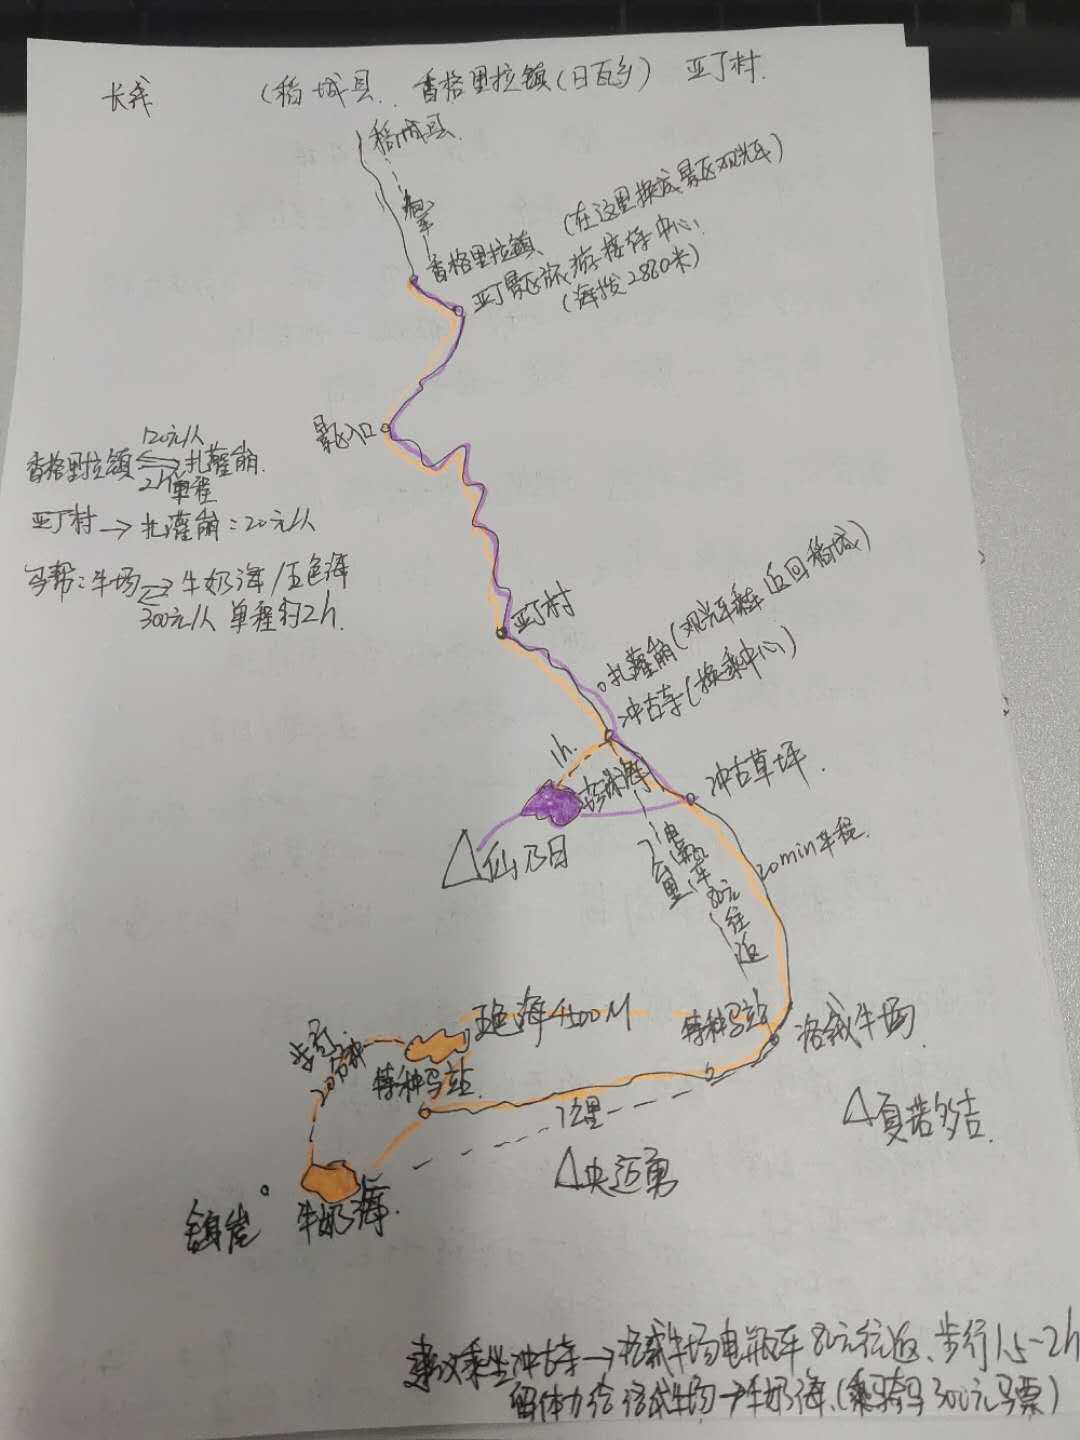 长线 (稻城县、香格里拉镇(日瓦乡) 亚丁村.
稻城县
包车
香格里拉镇 (在这里换成景区观光车)
亚丁景区旅游接待中心
(海拔2880米)
景区入口
120元/人
香格里拉镇 ⇌ 扎灌崩.
2h单程
亚丁村 → 扎灌崩:20元/人
马帮:牛场 ⇌ 牛奶海/五色海
300元/人 单程约2h.
亚丁村
扎灌崩(观光车乘车返回稻城)
冲古寺(换乘中心)
1h.
珍珠海
冲古草坪.
仙乃日
7公里
电瓶车80元往返
20min车程.
五色海4500M
特种马站
洛绒牛场
步行
20分钟
特种马站.
7公里
夏诺多吉.
央迈勇
牛奶海.
建议乘坐冲古寺→洛绒牛场电瓶车80元往返、步行1.5-2h
留体力给洛绒牛场→牛奶海.(乘骑马300元马票)